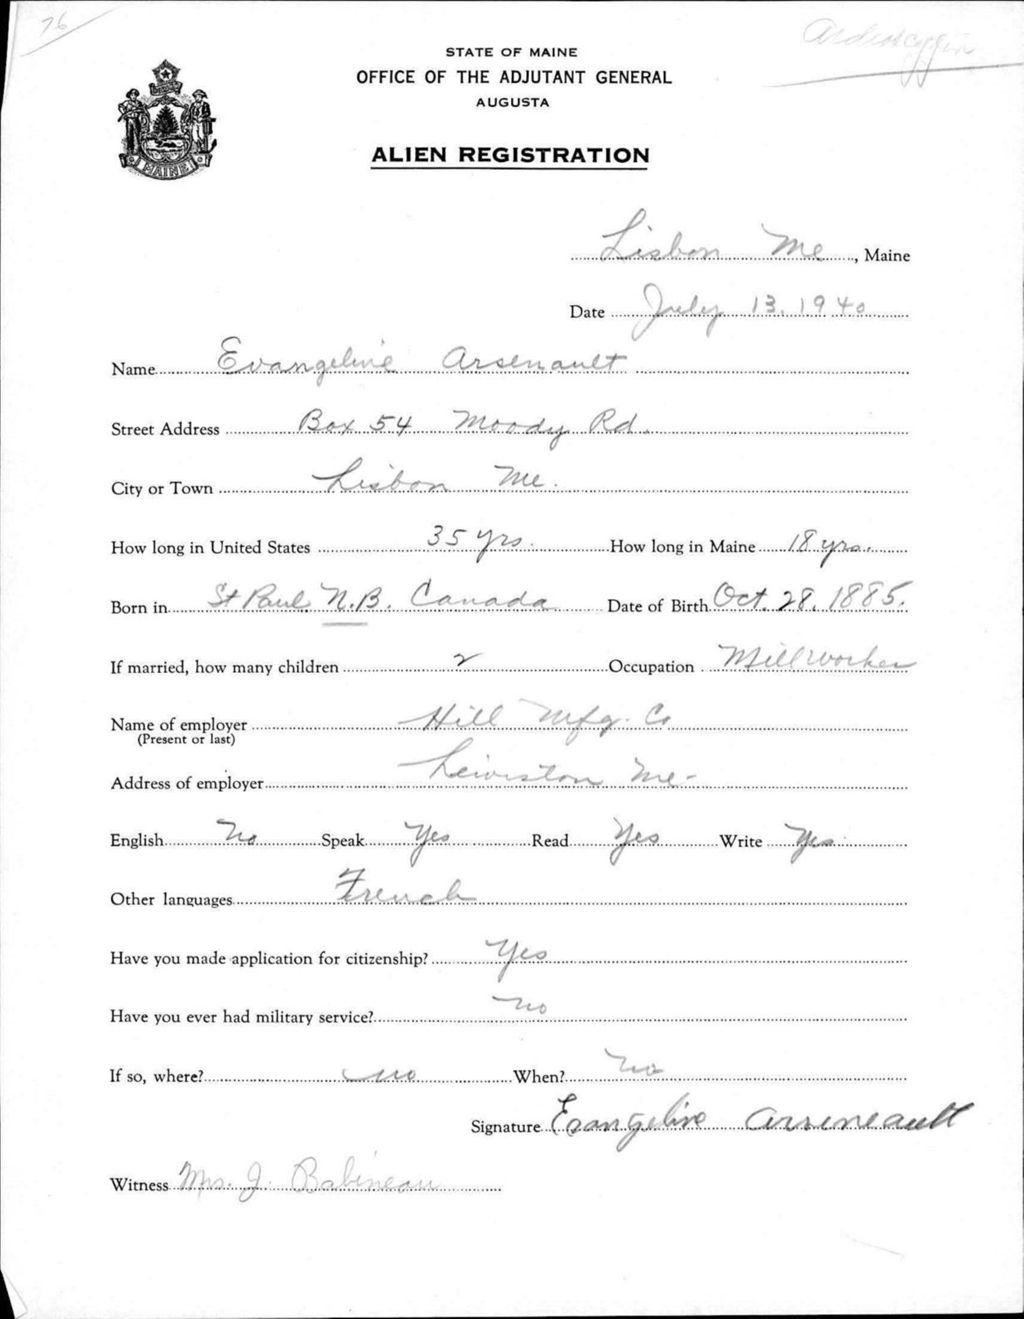 76
Androscoggin
STATE OF MAINE
OFFICE OF THE ADJUTANT GENERAL
AUGUSTA
ALIEN REGISTRATION
MAINE
Lisbon Me, Maine
Date July 13, 1940
Name Evangeline Arsenault
Street Address Box 54 Moody Rd.
City or Town Lisbon Me.
How long in United States 35 yrs. How long in Maine 18 yrs.
Born in St Paul N.B. Canada Date of Birth Oct. 28, 1885.
If married, how many children 2 Occupation Millworker
Name of employer Hill Mfg. Co
(Present or last)
Address of employer Lewiston Me-
English No Speak Yes Read Yes Write Yes
Other languages French
Have you made application for citizenship? Yes
Have you ever had military service? no
If so, where? no When? no
Signature Evangeline Arseneault
Witness Mrs. J. Babineau